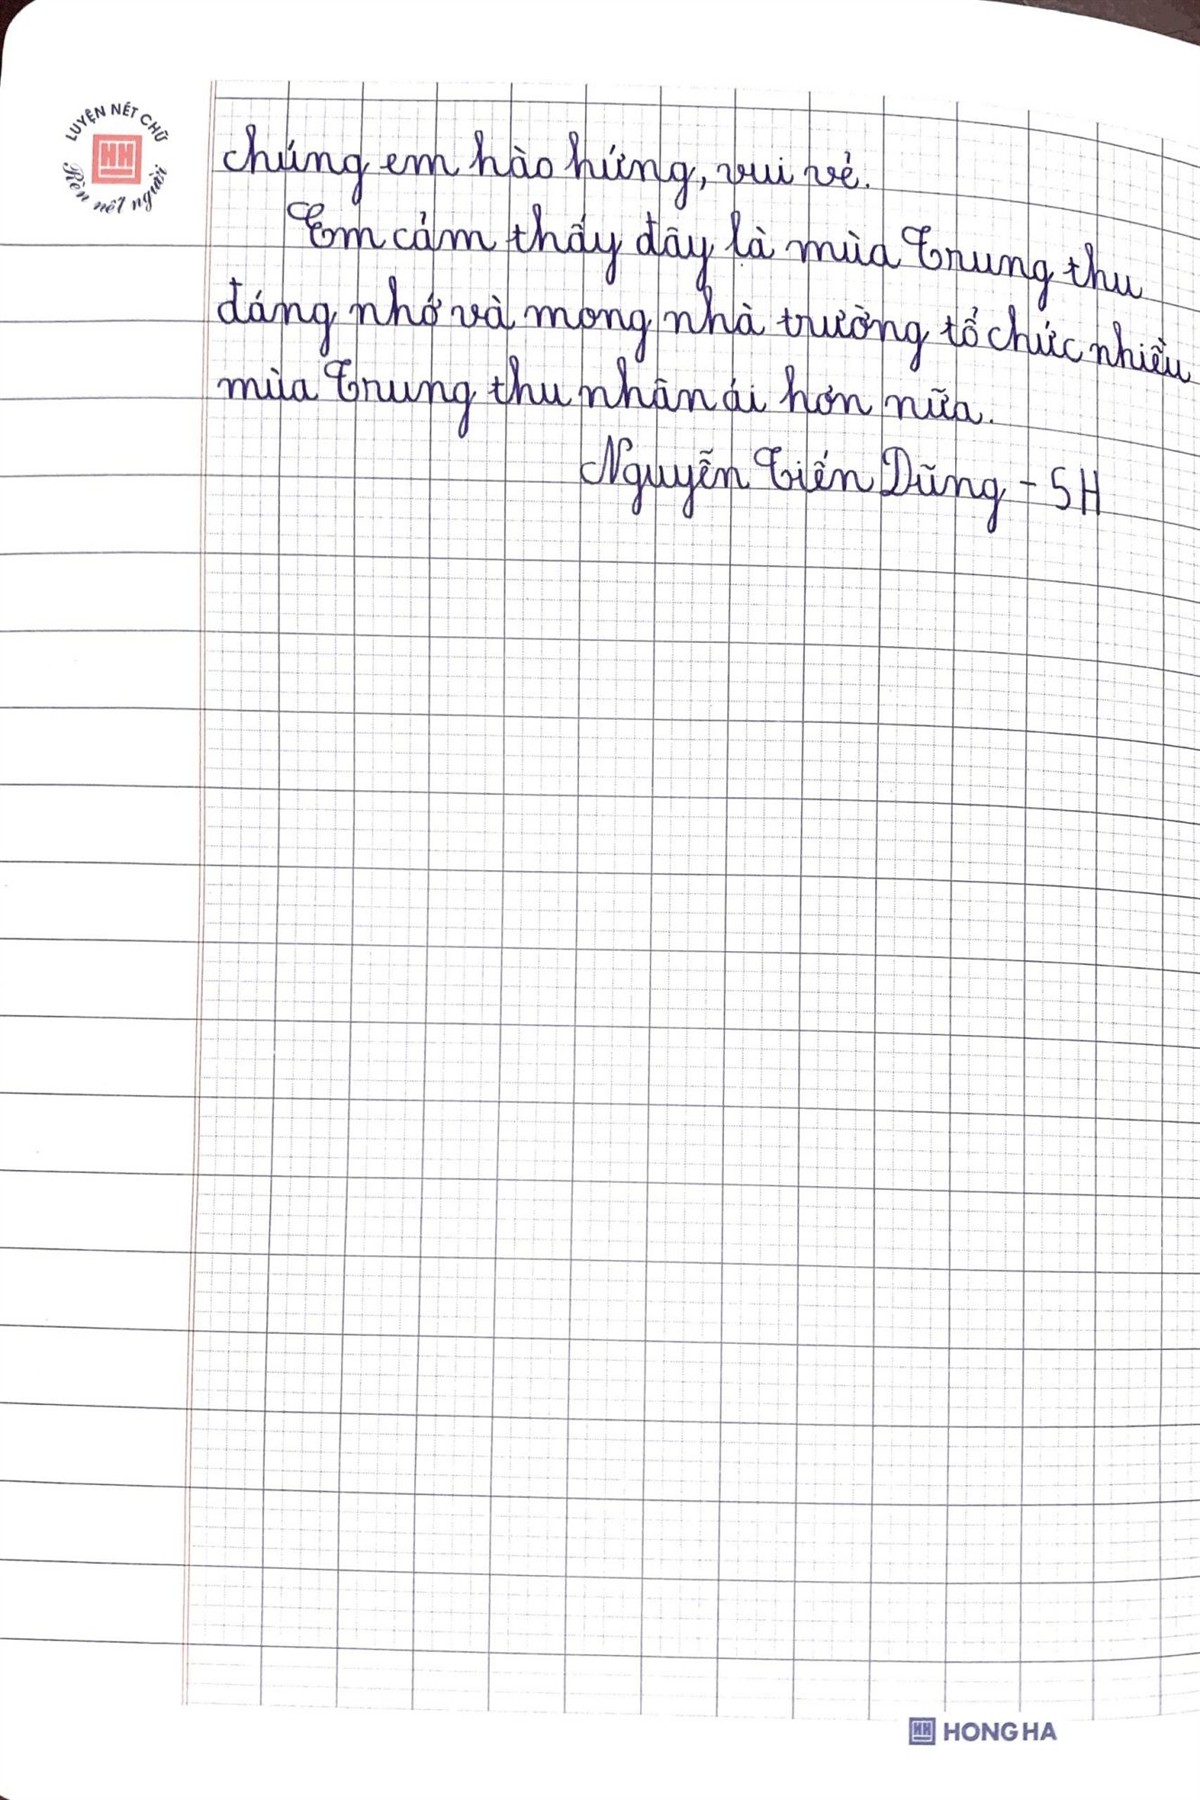 LUYỆN NÉT CHỮ
HH
Rèn nết người
chúng em hào hứng, vui vẻ.
Em cảm thấy đây là mùa Trung thu
đáng nhớ và mong nhà trường tổ chức nhiều
mùa Trung thu nhân ái hơn nữa.
Nguyễn Tiến Dũng - 5H
HH HONG HA